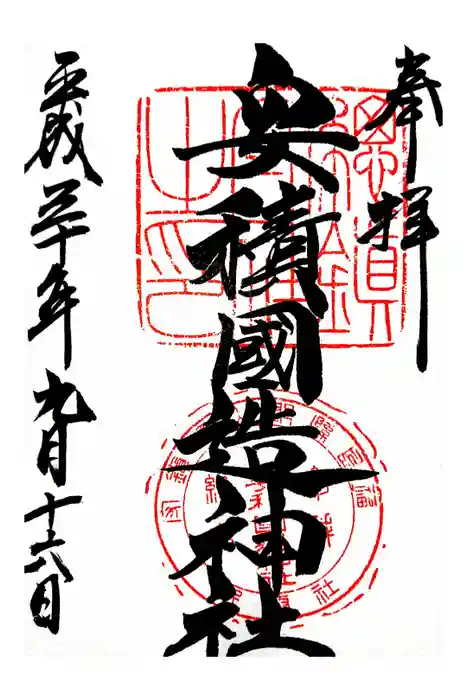 奉拝
安積國造神社
平成三十年九月十六日